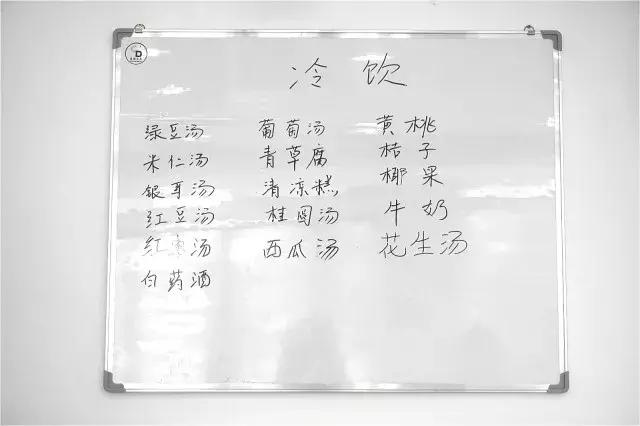 冷饮
绿豆汤
米仁汤
银耳汤
红豆汤
红枣汤
白药酒
葡萄汤
青草腐
清凉糕
桂圆汤
西瓜汤
黄桃
桔子
椰果
牛奶
花生汤